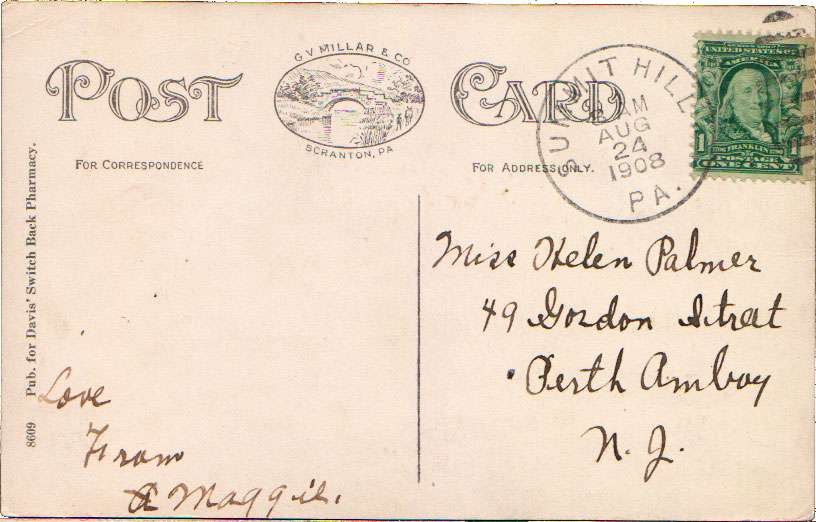 POST CARD
G V MILLAR & CO
SCRANTON, PA
FOR CORRESPONDENCE
FOR ADDRESS ONLY.
SUMMIT HILL
AM
AUG
24
1908
PA.
SERIES 1902
UNITED STATES OF
AMERICA
1706 FRANKLIN 1790
1 POSTAGE 1
ONE CENT
8609 Pub. for Davis' Switch Back Pharmacy.
Miss Helen Palmer
49 Gordon Street
Perth Amboy
N. J.
Love
From
Maggie.